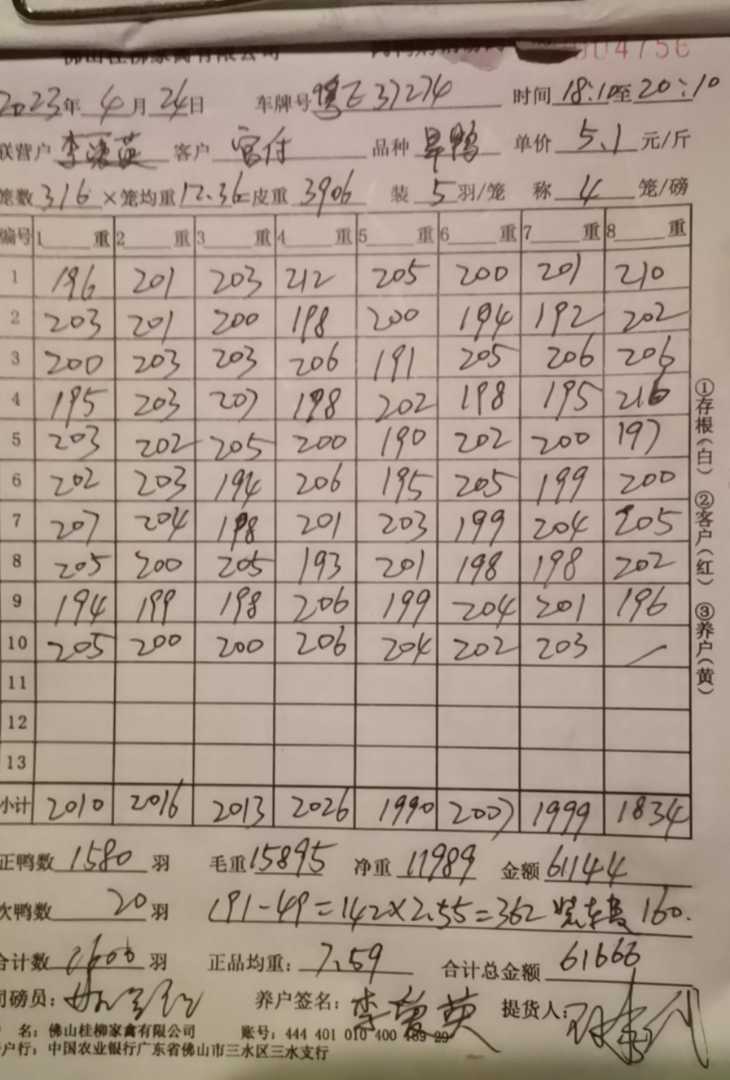 佛山桂柳家禽有限公司
2023年 4 月 24日 车牌号 37274 时间 18:10至20:10
联营户 客户 宫付 品种 旱鸭 单价 5.1 元/斤
笼数 316 ×笼均重12.36=皮重 3906 装 5 羽/笼 称 4 笼/磅
编号 1 重 2 重 3 重 4 重 5 重 6 重 7 重 8 重
1 196 201 203 212 205 200 201 210
2 203 201 200 198 200 194 192 202
3 200 203 203 206 191 205 206 206
4 195 203 207 198 202 198 195 216
5 203 202 205 200 190 202 200 197
6 202 203 194 206 195 205 199 200
7 207 204 198 201 203 199 204 205
8 205 200 205 193 201 198 198 202
9 194 199 198 206 199 204 201 196
10 205 200 200 206 204 202 203 —
11
12
13
小计 2010 2016 2013 2026 1990 2007 1999 1834
正鸭数 1580 羽 毛重15895 净重 11989 金额 61144
次鸭数 20 羽 191-49=142×2.55=362 160.
合计数 1600 羽 正品均重: 7.59 合计总金额 61666
司磅员: 养户签名: 提货人:
户 名: 佛山桂柳家禽有限公司 账号: 444 401 010 400 469 29
开户行: 中国农业银行广东省佛山市三水区三水支行
①存根(白) ②客户(红) ③养户(黄)